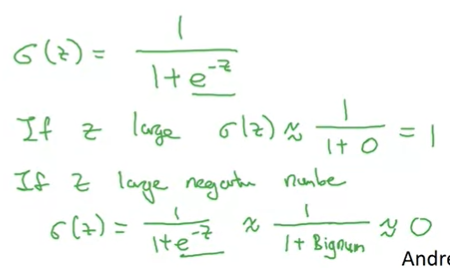 σ(z) = 1 / (1 + e^{-z})
If z large σ(z) ≈ 1 / (1 + 0) = 1
If z large negative number
σ(z) = 1 / (1 + e^{-z}) ≈ 1 / (1 + Bignum) ≈ 0
Andre